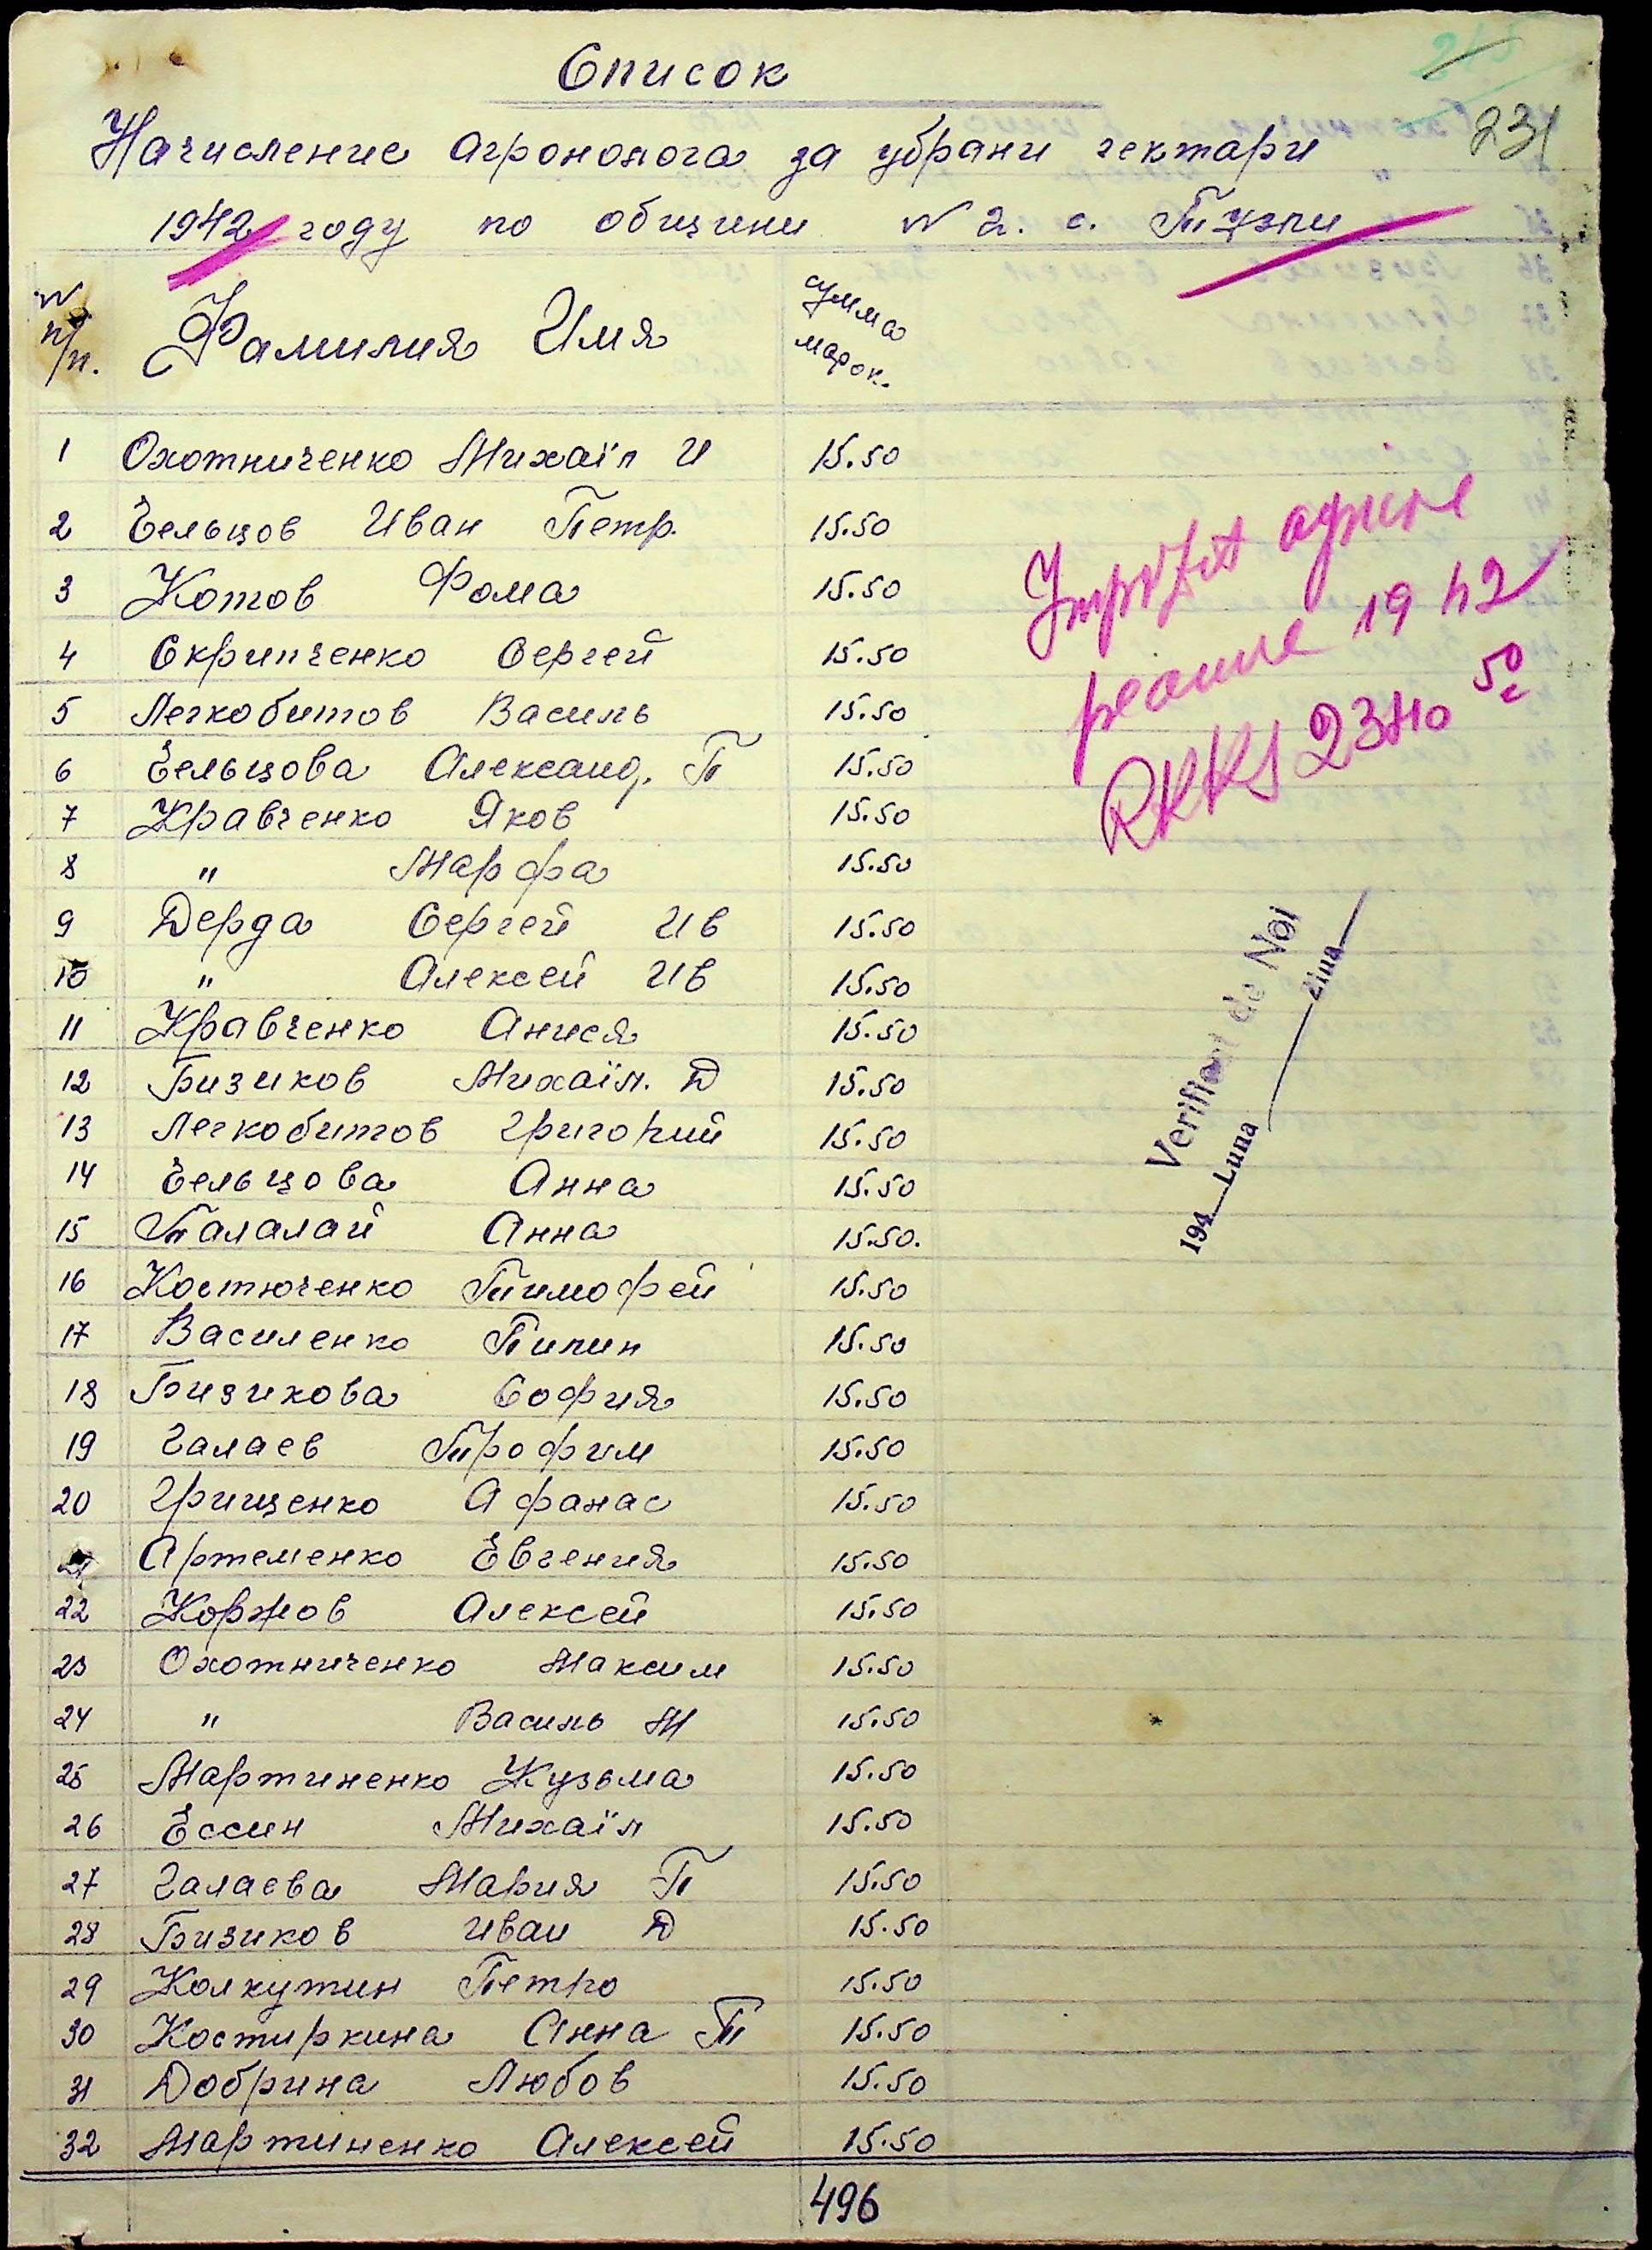 Список
231
Начисление агрономога за убрани гектари
1942 году по общини № 2. с. Тузли
№ п/п. Фамилия Имя сумма марок.
1 Охотниченко Михаїл И 15.50
2 Ельцов Иван Петр. 15.50
3 Котов Фома 15.50
4 Скрипченко Сергей 15.50
5 Легкобитов Василь 15.50
6 Ельцова Александ. П 15.50
7 Кравченко Яков 15.50
8 " Марфа 15.50
9 Дерда Сергей Ив 15.50
10 " Алексей Ив 15.50
11 Кравченко Анися 15.50
12 Бизиков Михаїл. Д 15.50
13 Легкобитов Григорий 15.50
14 Ельцова Анна 15.50
15 Талалай Анна 15.50.
16 Костюченко Тимофей 15.50
17 Василенко Пилип 15.50
18 Бизикова София 15.50
19 Галаев Трофим 15.50
20 Грищенко Афанас 15.50
21 Артеменко Евгения 15.50
22 Коржов Алексей 15.50
23 Охотниченко Максим 15.50
24 " Василь М 15.50
25 Мартиненко Кузьма 15.50
26 Ессин Михаїл 15.50
27 Галаева Мария П 15.50
28 Бизиков Иван Д 15.50
29 Колкутин Петро 15.50
30 Костиркина Анна Т 15.50
31 Добрина Любов 15.50
32 Мартиненко Алексей 15.50
496
Impozit agricol
1942
RKKS 2340 50
Verificat de Noi
194 Luna Ziua